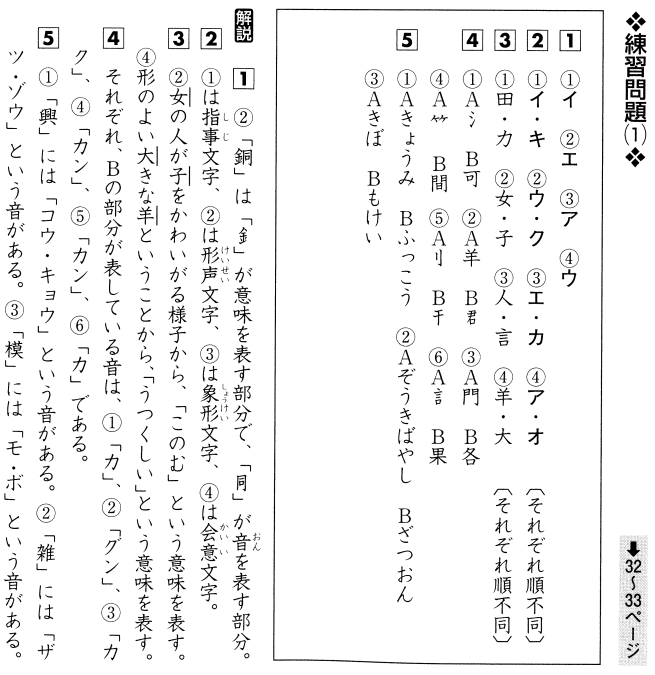 ❖練習問題⑴❖
➡32〜33ページ
1 ①イ ②エ ③ア ④ウ
2 ①イ・キ ②ウ・ク ③エ・カ ④ア・オ 〔それぞれ順不同〕
3 ①田・力 ②女・子 ③人・言 ④羊・大 〔それぞれ順不同〕
4 ①A氵 B可 ②A羊 B君 ③A門 B各
④A⺮ B間 ⑤A刂 B干 ⑥A言 B果
5 ①Aきょうみ Bふっこう ②Aぞうきばやし Bざつおん
③Aきぼ Bもけい
解説 1 ②「銅」は「釒」が意味を表す部分で、「同」が音を表す部分。
おん
2 ①は指事文字、②は形声文字、③は象形文字、④は会意文字。
しじ けいせい しょうけい かいい
3 ②女の人が子をかわいがる様子から、「このむ」という意味を表す。
④形のよい大きな羊ということから、「うつくしい」という意味を表す。
4 それぞれ、Bの部分が表している音は、①「カ」、②「グン」、③「カ
ク」、④「カン」、⑤「カン」、⑥「カ」である。
5 ①「興」には「コウ・キョウ」という音がある。②「雑」には「ザ
ツ・ゾウ」という音がある。③「模」には「モ・ボ」という音がある。